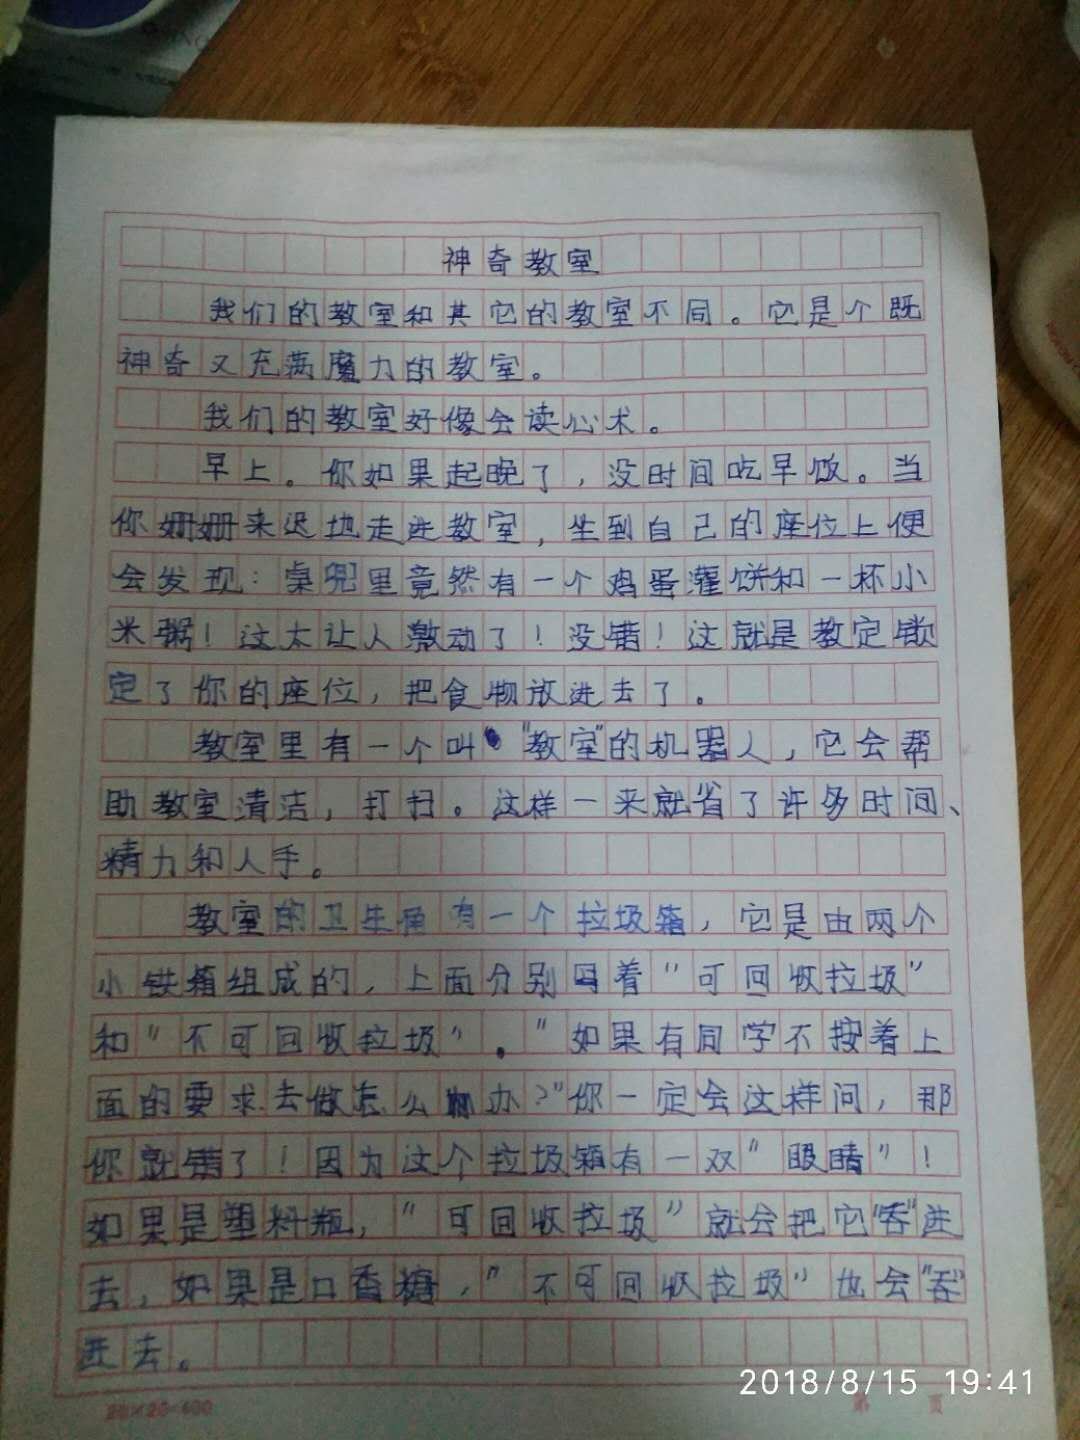 神奇教室
我们的教室和其它的教室不同。它是个既
神奇又充满魔力的教室。
我们的教室好像会读心术。
早上。你如果起晚了,没时间吃早饭。当
你姗姗来迟地走进教室,坐到自己的座位上便
会发现:桌兜里竟然有一个鸡蛋灌饼和一杯小
米粥!这太让人激动了!没错!这就是教定锁
定了你的座位,把食物放进去了。
教室里有一个叫“教室”的机器人,它会帮
助教室清洁,打扫。这样一来就省了许多时间、
精力和人手。
教室的卫生角有一个垃圾箱,它是由两个
小铁箱组成的,上面分别写着“可回收垃圾”
和“不可回收垃圾”。“如果有同学不按着上
面的要求去做怎么办?”你一定会这样问,那
你就错了!因为这个垃圾箱有一双“眼睛”!
如果是塑料瓶,“可回收垃圾”就会把它“吞”进
去,如果是口香糖,“不可回收垃圾”也会“吞”
进去。
20×20=400
第 页
2018/8/15 19:41